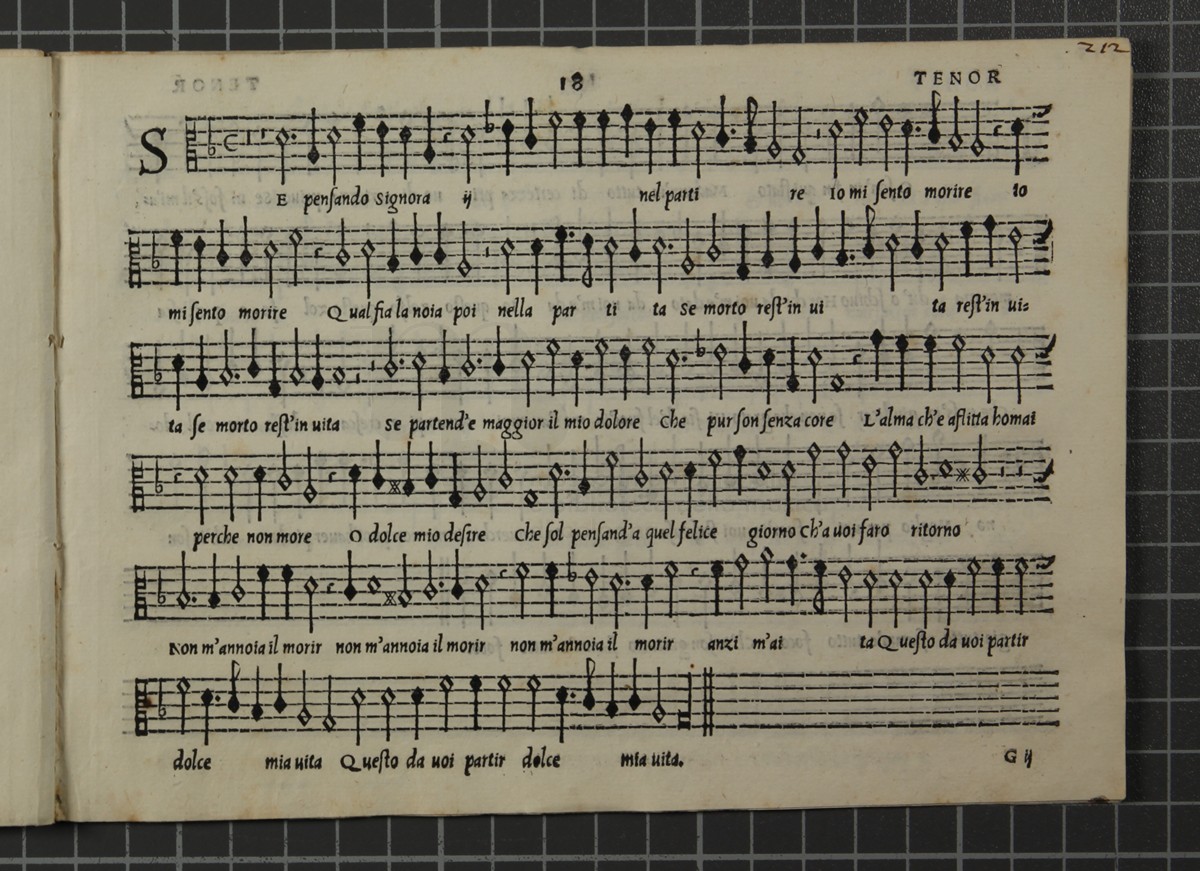 212
18 TENOR
SE penſando signora ij nel parti re Io mi ſento morire io
mi ſento morire Qual fia la noia poi nella par ti ta Se morto reſt'in ui ta reſt'in ui=
ta ſe morto reſt'in uita Se partend'e maggior il mio dolore Che pur ſon ſenza core L'alma ch'e aflitta homai
perche non more O dolce mio deſire Che ſol penſand'a quel felice giorno Ch'a uoi faro ritorno
Non m'annoia il morir non m'annoia il morir non m'annoia il morir anzi m'ai ta Queſto da uoi partir
dolce mia uita Queſto da uoi partir dolce mia uita.
G ij